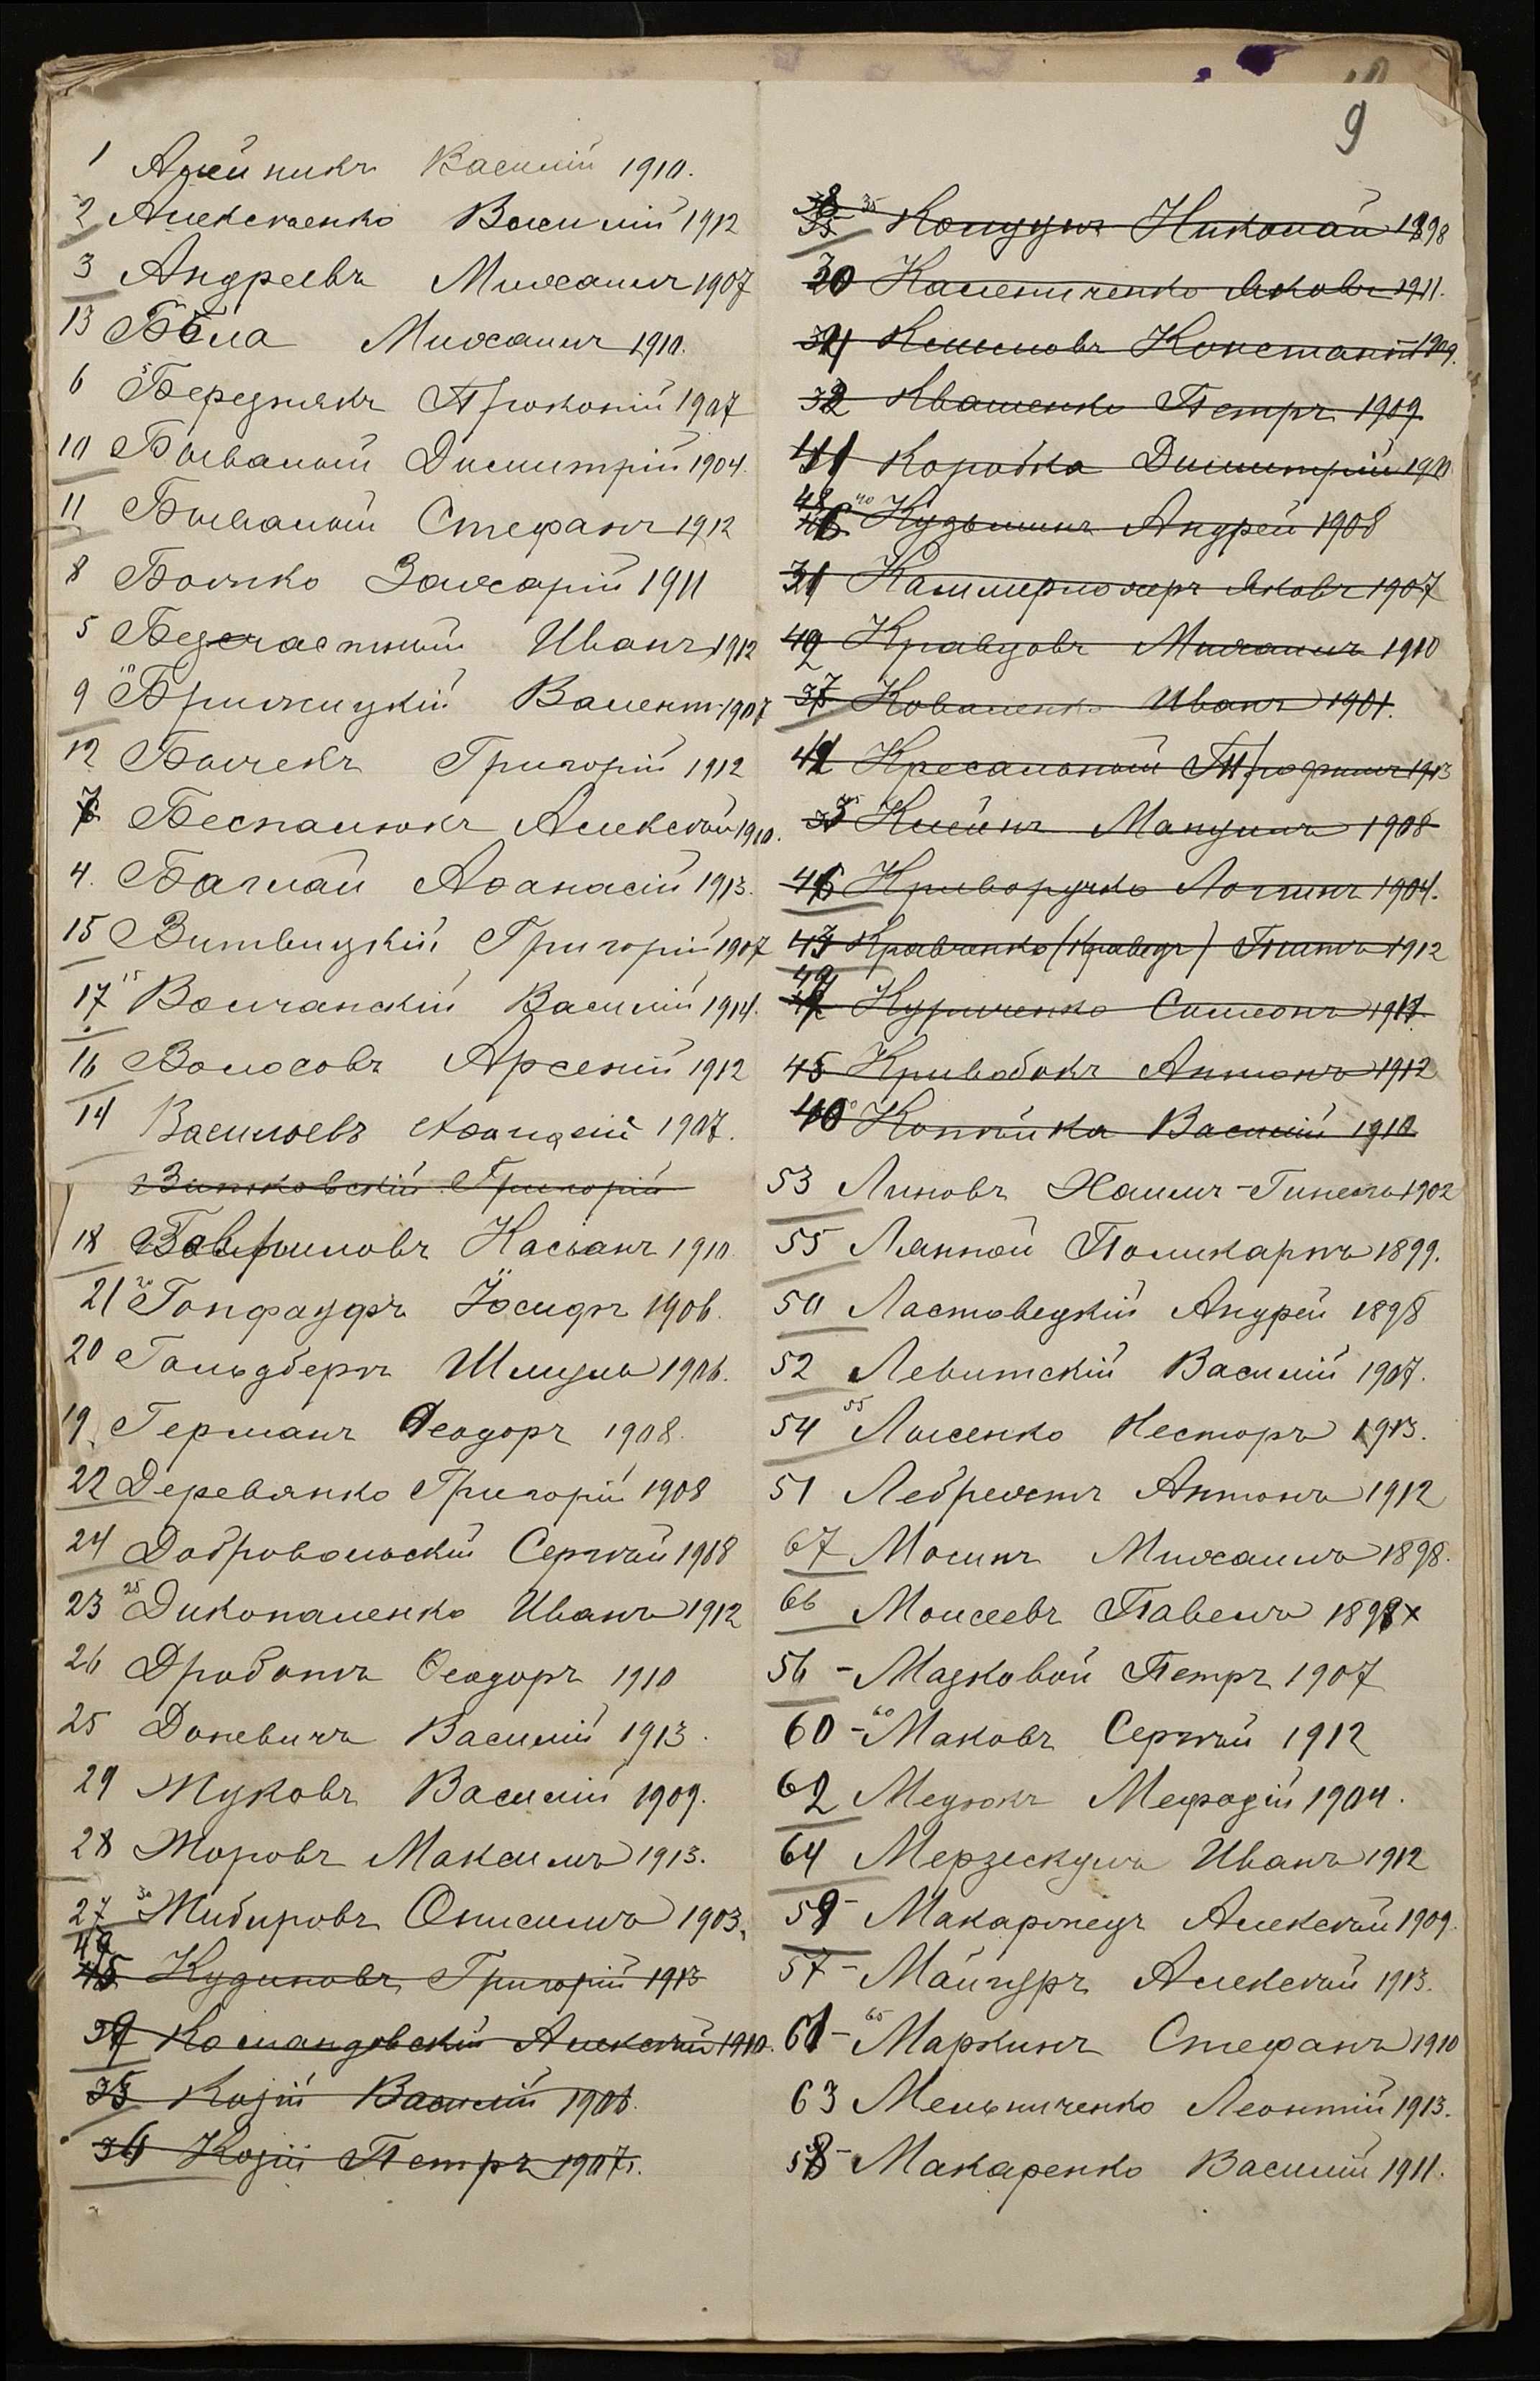 9
1 Алейникъ Василій 1910.
2 Алексѣенко Василій 1912
3 Андреевъ Михаилъ 1907
13 Бѣла Михаилъ 1910.
6 5 Березнякъ Прокопій 1907
10 Бывалый Димитрій 1904.
11 Бывалый Стефанъ 1912
8 Бойко Захарій 1911
5 Безчастный Иванъ 1912
9 10 Брилицкій Валент. 1907
12 Бычекъ Григорій 1912
7 Беспалюкъ Алексѣй 1910.
4. Баглай Аѳанасій 1913.
15 Витвицкій Григорій 1907
17 15 Волчанскій Василій 1914.
16 Волосовъ Арсеній 1912
14 Васильевъ Аѳанасій 1907.
Витковскій Григорій
18 Гавриловъ Касьянъ 1910.
21 20 Гонфауфъ Іосифъ 1906.
20 Гольдбергъ Шмуль 1906.
19. Германъ Ѳеодоръ 1908.
22 Деревянко Григорій 1908
24 Добровольскій Сергѣй 1908
23 25 Диконаленко Иванъ 1912
26 Дроботъ Ѳеодоръ 1910
25 Доневичъ Василій 1913.
29 Жуковъ Василій 1909.
28 Жоровъ Максимъ 1913.
27 30 Жибировъ Онисимъ 1903.
Кудиновъ Григорій 1913
39 Командовскій Алексѣй 1910.
35 Козій Василій 1906.
36 Козій Петръ 1907.
38 35 Колцунъ Николай 1898
30 Калениченко Яковъ 1911.
34 Климовъ Константинъ 1909.
32 Квашенко Петръ 1909.
41 Коробка Димитрій 1910
48 40 Кузьминъ Андрей 1908
31 Каммермахеръ Яковъ 1907
42 Кравцовъ Михаилъ 1910
37 Коваленко Иванъ 1901.
Кресальный Трофимъ 1913
33 Клейнъ Мануилъ 1908
46 Криворучко Логинъ 1904.
43 Кравченко (Кравецъ) Титъ 1912
49 Куриченко Симеонъ 1911.
45 Кривобокъ Антонъ 1912
40 Копѣйка Василій 1910
53 Линовъ Хаимъ-Гинель 1902
55 Лянной Поликарпъ 1899.
50 Ластовецкій Андрей 1898
52 Левитскій Василій 1907.
54 55 Лысенко Несторъ 1913.
51 Лебрехтъ Антонъ 1912
67 Мосинъ Михаилъ 1898.
66 Моисеевъ Павелъ 1898 х
56 - Мазковой Петръ 1907
60 - 60 Маковъ Сергѣй 1912
62 Медюкъ Мефодій 1904.
64 Мерзескулъ Иванъ 1912
59 - Макаржецъ Алексѣй 1909.
57 - Майгуръ Алексѣй 1913.
61 - 65 Маркинъ Стефанъ 1910
63 Мельниченко Леонтій 1913.
58 - Макаренко Василій 1911.